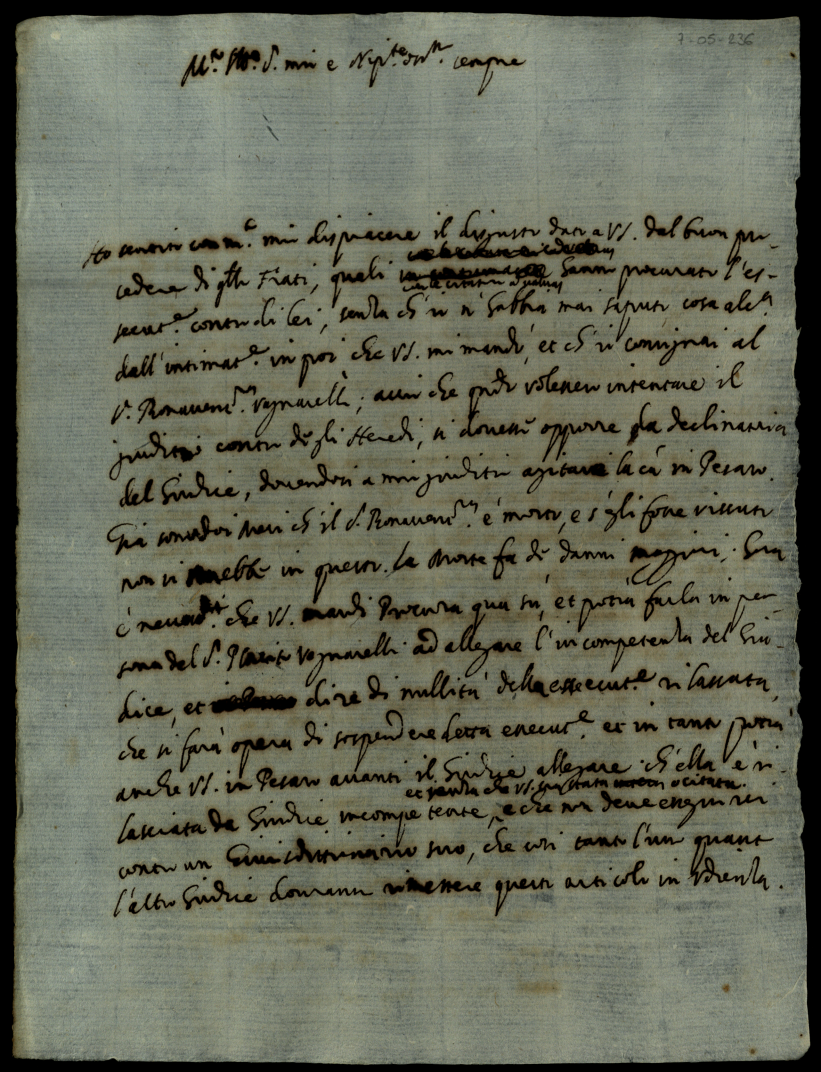 7-05-236
M.to Ill.re S.r mio e Nip.te oss.mo sempre
Ho sentito con m.o mio dispiacere il disgusto dato a VS. dal buon pro-
cedere di q.lli Frati, quali hanno procurato l'es-
secut.e contro di lei, senza ch'io n'habbia mai saputo cosa alc.a
dall'intimat.e in poi che VS. mi mandò, et ch'io consignai al
S.r Bonavent.a Vagnarelli; acciò che q.ndo volessero intentare il
giuditio contro de gli Heredi, si dovesse opporre la declinatoria
del Giudice, dovendosi a mio giuditio agitare la cā in Pesaro.
Già sono doi Mesi ch'il S.r Bonavent.a è morto, e s'egli fosse vissuto
non si sarebbe in questo. La Morte fa de danni maggiori. Hora
è necess.o che VS. mandi Procura qua sù, et potrà farla in per-
sona del S.r Vagnarelli ad allegare l'incompetenza del Giu-
dice, et dire di nullità della essecut.e rilassata,
che si farà opera di sospendere detta essecut.e et in tanto potrà
anche VS. in Pesaro avanti il Giudice allegare ch'ella è ri-
et senza che VS. sia stata citata.
lasciata da Giudice incompetente, e che non deve esseguirsi
contro un Giurisdittionario suo, che così tanto l'uno quanto
l'altro Giudice dovranno rimettere questo articolo in Udienza.